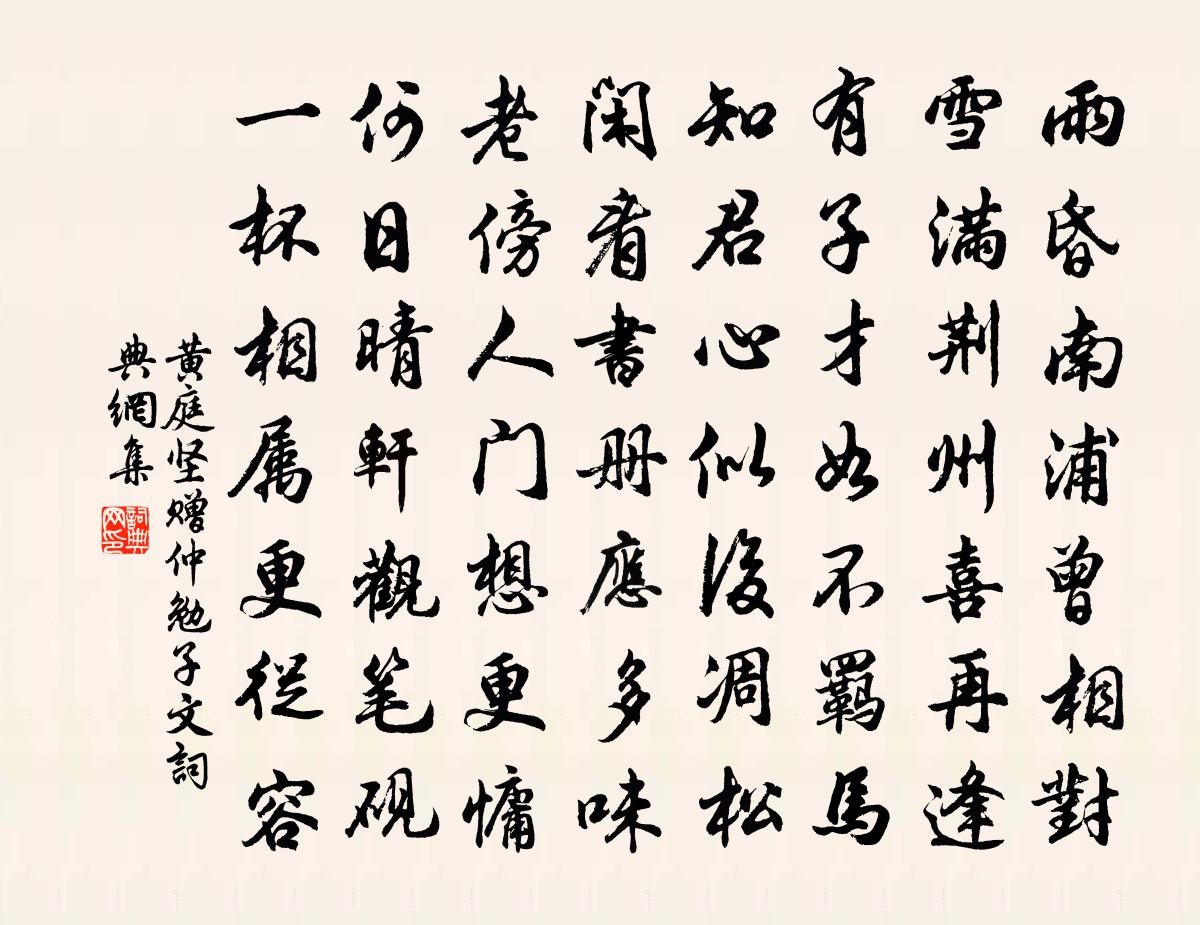 雨昏南浦曾相對
雪滿荆州喜再逢
有子才如不羈馬
知君心似後凋松
閑看書册應多味
老傍人门想更慵
何日晴軒觀笔砚
一杯相属更從容
黄庭坚赠仲勉子文詞
典網集
詞典网印